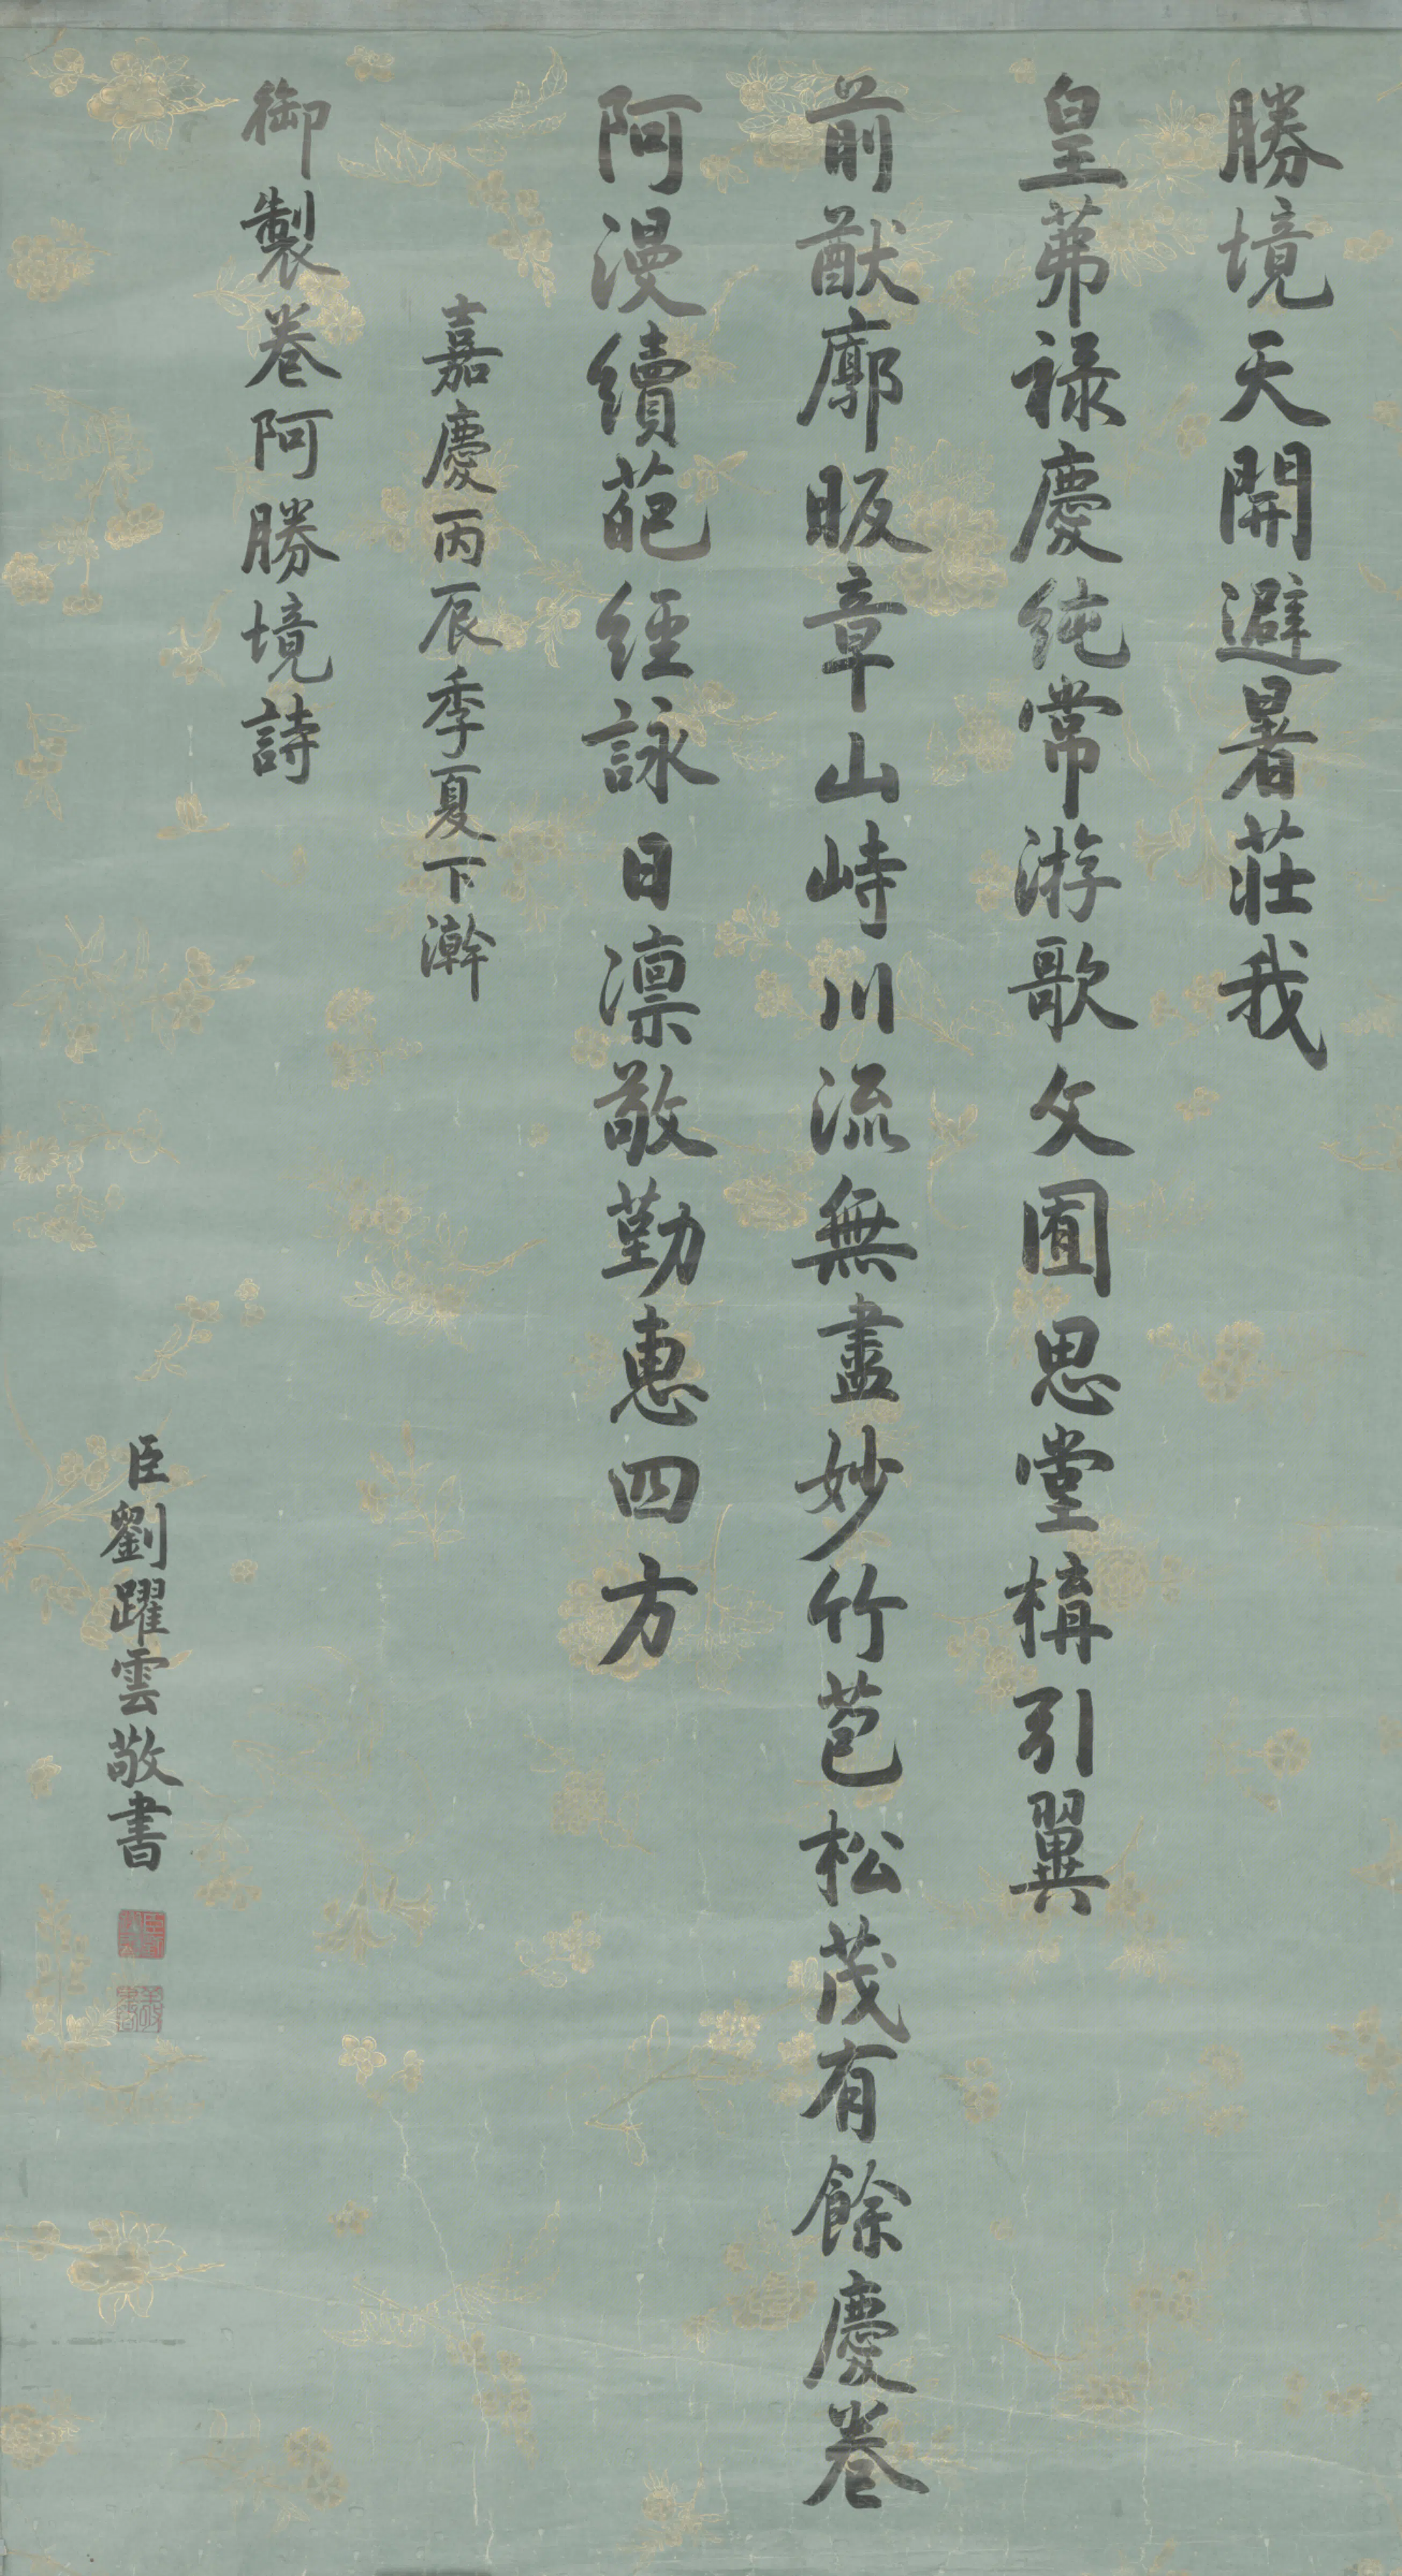 勝境天開避暑莊我
皇茀祿慶純常游歌文囿思堂構引翼
前猷廓昄章山峙川流無盡妙竹苞松茂有餘慶卷
阿漫續葩經詠日凜敬勤惠四方
嘉慶丙辰季夏下澣
御製卷阿勝境詩
臣劉躍雲敬書